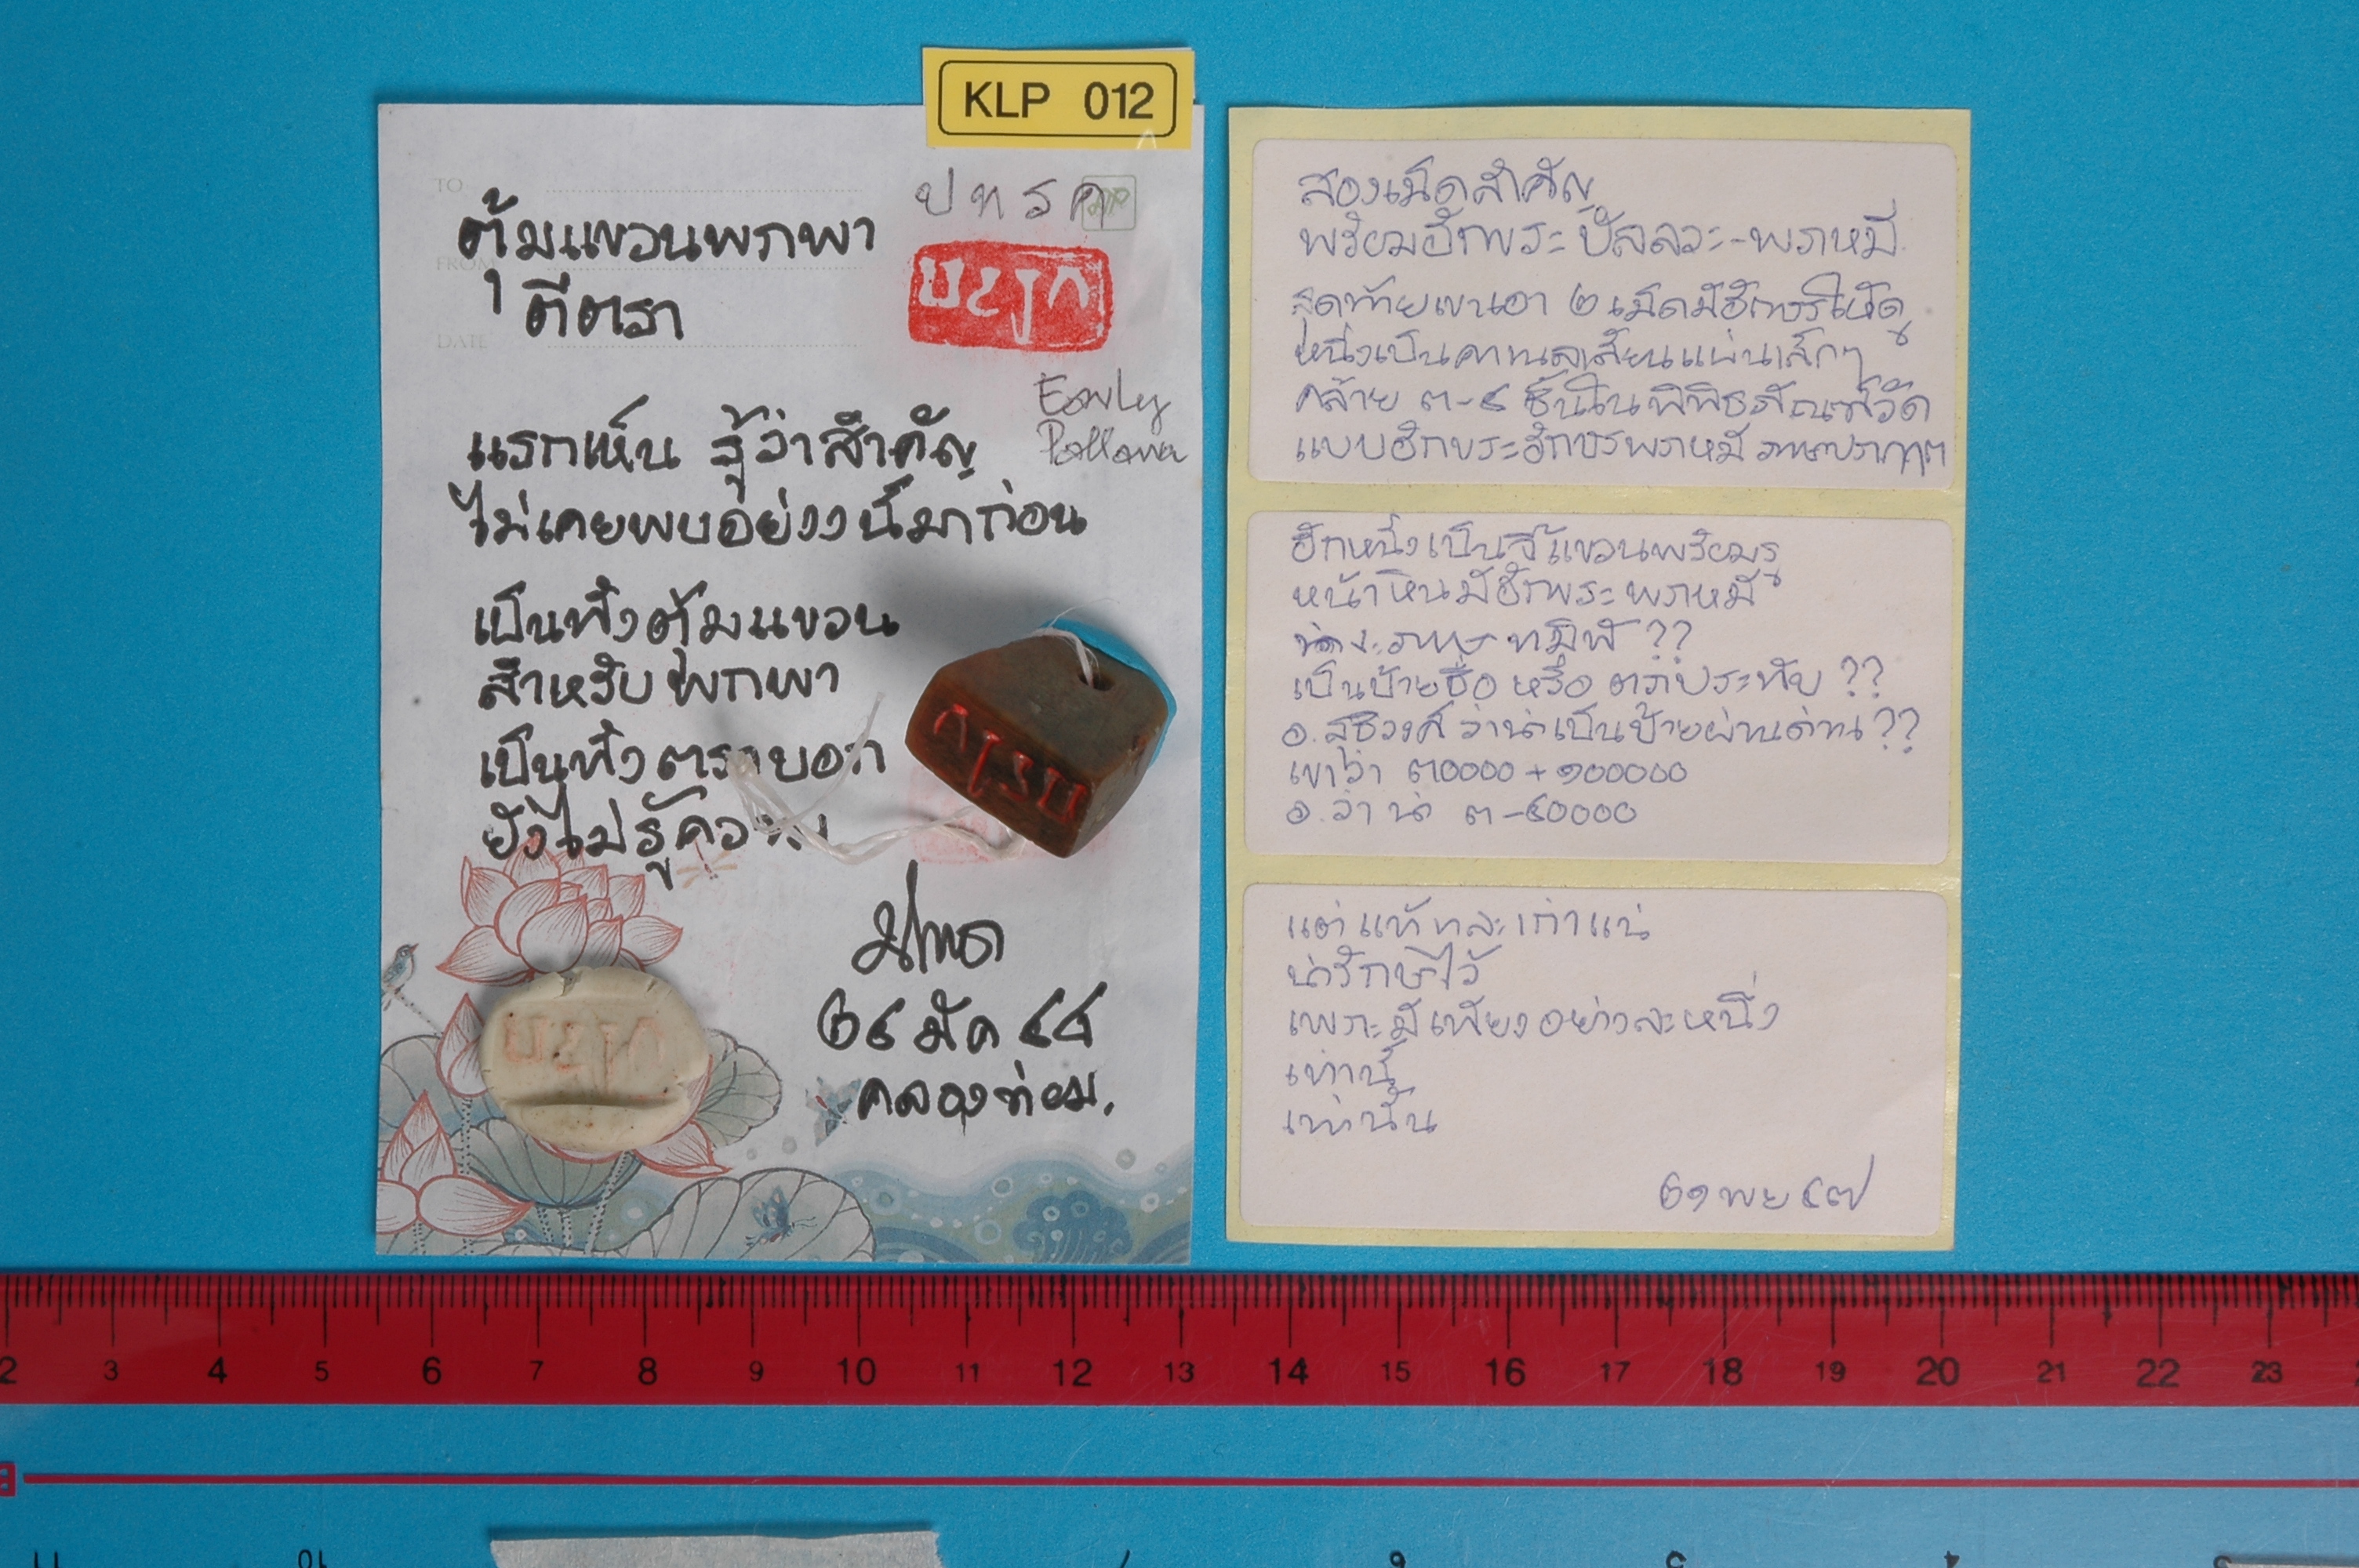 KLP 012
TO
FROM
DATE
ปทรค
ตุ้มแขวนพกพา
ตีตรา
Early
Pallava
แรกเห็น รู้ว่าสำคัญ
ไม่เคยพบอย่างนี้มาก่อน
เป็นทั้งตุ้มแขวน
สำหรับพกพา
เป็นทั้งตราบอก
ยังไม่รู้ความ
๒๕ มีค ๕๕
คลองท่อม.
สองเม็ดสำคัญ
พร้อมอักขระปัลลวะ-พราหมี
สุดท้ายเขาเอา ๒ เม็ดมีอักษรให้ดู
หนึ่งเป็นคาเนเลี่ยนแผ่นเล็กๆ
คล้าย ๓-๔ ชิ้นในพิพิธภัณฑ์วัด
แบบอักขระอักษรพราหมี ภาษาปรากฤต
อีกหนึ่งเป็นจี้แขวนพร้อมรู
หน้าหินมีอักขระพราหมี
ภาษาทมิฬ ??
เป็นป้ายชื่อ หรือ ตราประทับ ??
อ.สุธิวงศ์ ว่าน่าเป็นป้ายผ่านด่าน ??
เขาว่า ๓๐๐๐๐ + ๑๐๐๐๐๐
อ. ว่าน่า ๓-๔๐๐๐๐
แต่แท้และเก่าแน่
น่ารักษาไว้
เพราะมีเพียงอย่างละหนึ่ง
เท่านี้
เท่านั้น
๒๑ พย ๔๗
2 3 4 5 6 7 8 9 10 11 12 13 14 15 16 17 18 19 20 21 22 23
11 10 7 6 5 4